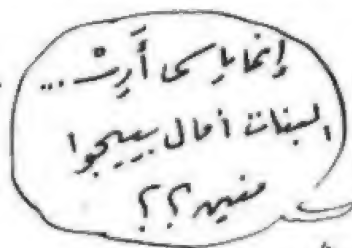 إنما ياسى أَرِتْ ...
البنات أمال بييجوا
منين ؟؟